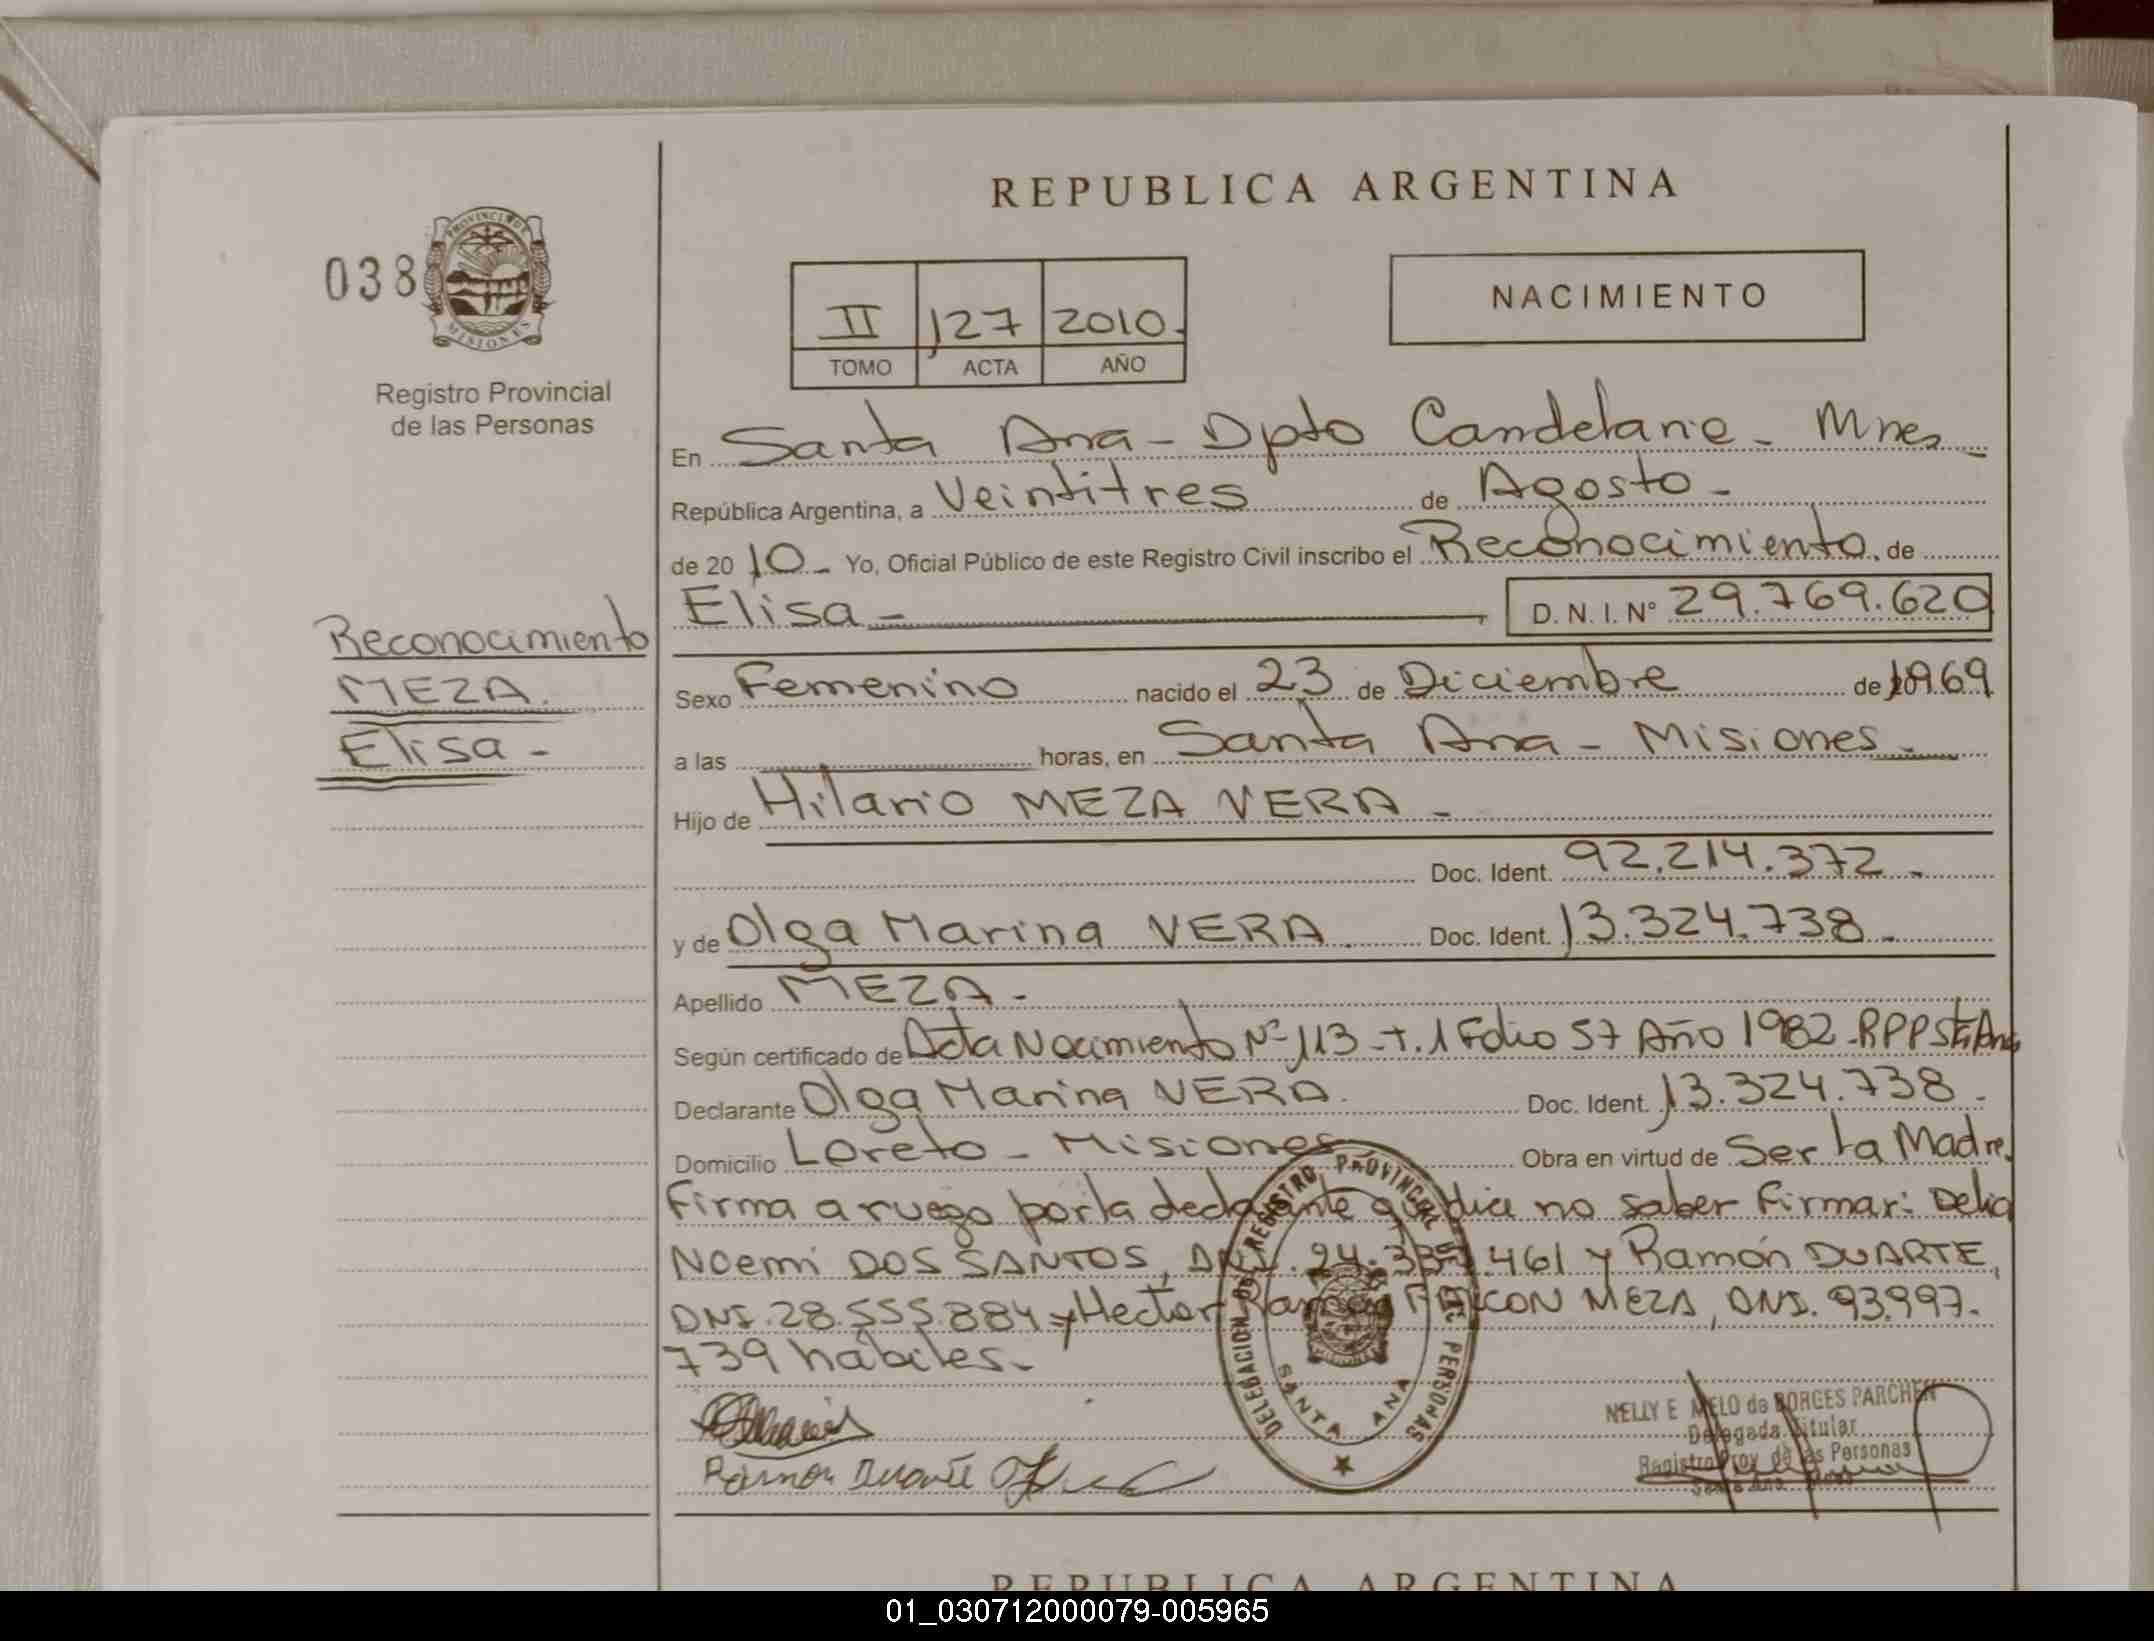 REPUBLICA ARGENTINA
038
PROVINCIA DE
MISIONES
Registro Provincial
de las Personas
II 127 2010.
TOMO ACTA AÑO
NACIMIENTO
En Santa Ana - Dpto Candelaria - Mnes
República Argentina, a Veintitres de Agosto -
de 2010 - Yo, Oficial Público de este Registro Civil inscribo el Reconocimiento de
Elisa - D. N. I. N° 29.769.620
Reconocimiento
MEZA.
Elisa -
Sexo Femenino nacido el 23 de Diciembre de 1969
a las horas, en Santa Ana - Misiones -
Hijo de Hilario MEZA VERA -
Doc. Ident. 92.214.372 -
y de Olga Marina VERA. Doc. Ident. 13.324.738 -
Apellido MEZA -
Según certificado de Acta Nacimiento Nº 113 - T. 1 Folio 57 Año 1982 - RPP Sta Ana
Declarante Olga Marina VERA. Doc. Ident. 13.324.738 -
Domicilio Loreto - Misiones Obra en virtud de Ser la Madre.
Firma a ruego por la declarante que dice no saber firmar: Delia
Noemi DOS SANTOS, DNI. 24.33 .461 y Ramón DUARTE,
DNI. 28.555.884 y Hector Ramón FALCON MEZA, DNI. 93.997.
739 habiles -
DELEGACION DE REGISTRO PROVINCIAL DE PERSONAS
SANTA ANA
Ramon Duarte
NELLY E MELO de BORGES PARCHEN
Delegada Titular
Registro Prov. de las Personas
Santa Ana
REPUBLICA ARGENTINA
01_030712000079-005965